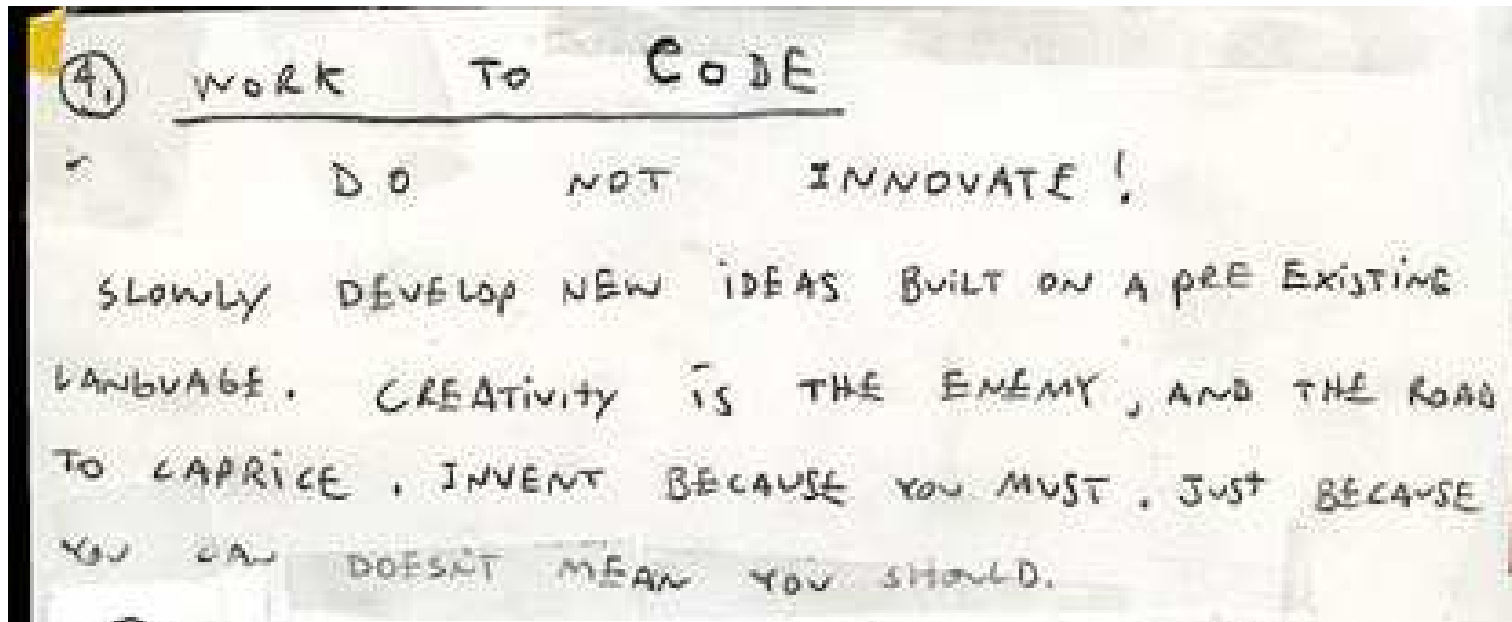 4. WORK TO CODE
DO NOT INNOVATE!
SLOWLY DEVELOP NEW IDEAS BUILT ON A PRE EXISTING
LANGUAGE. CREATIVITY IS THE ENEMY, AND THE ROAD
TO CAPRICE. INVENT BECAUSE YOU MUST. JUST BECAUSE
YOU CAN DOESN'T MEAN YOU SHOULD.